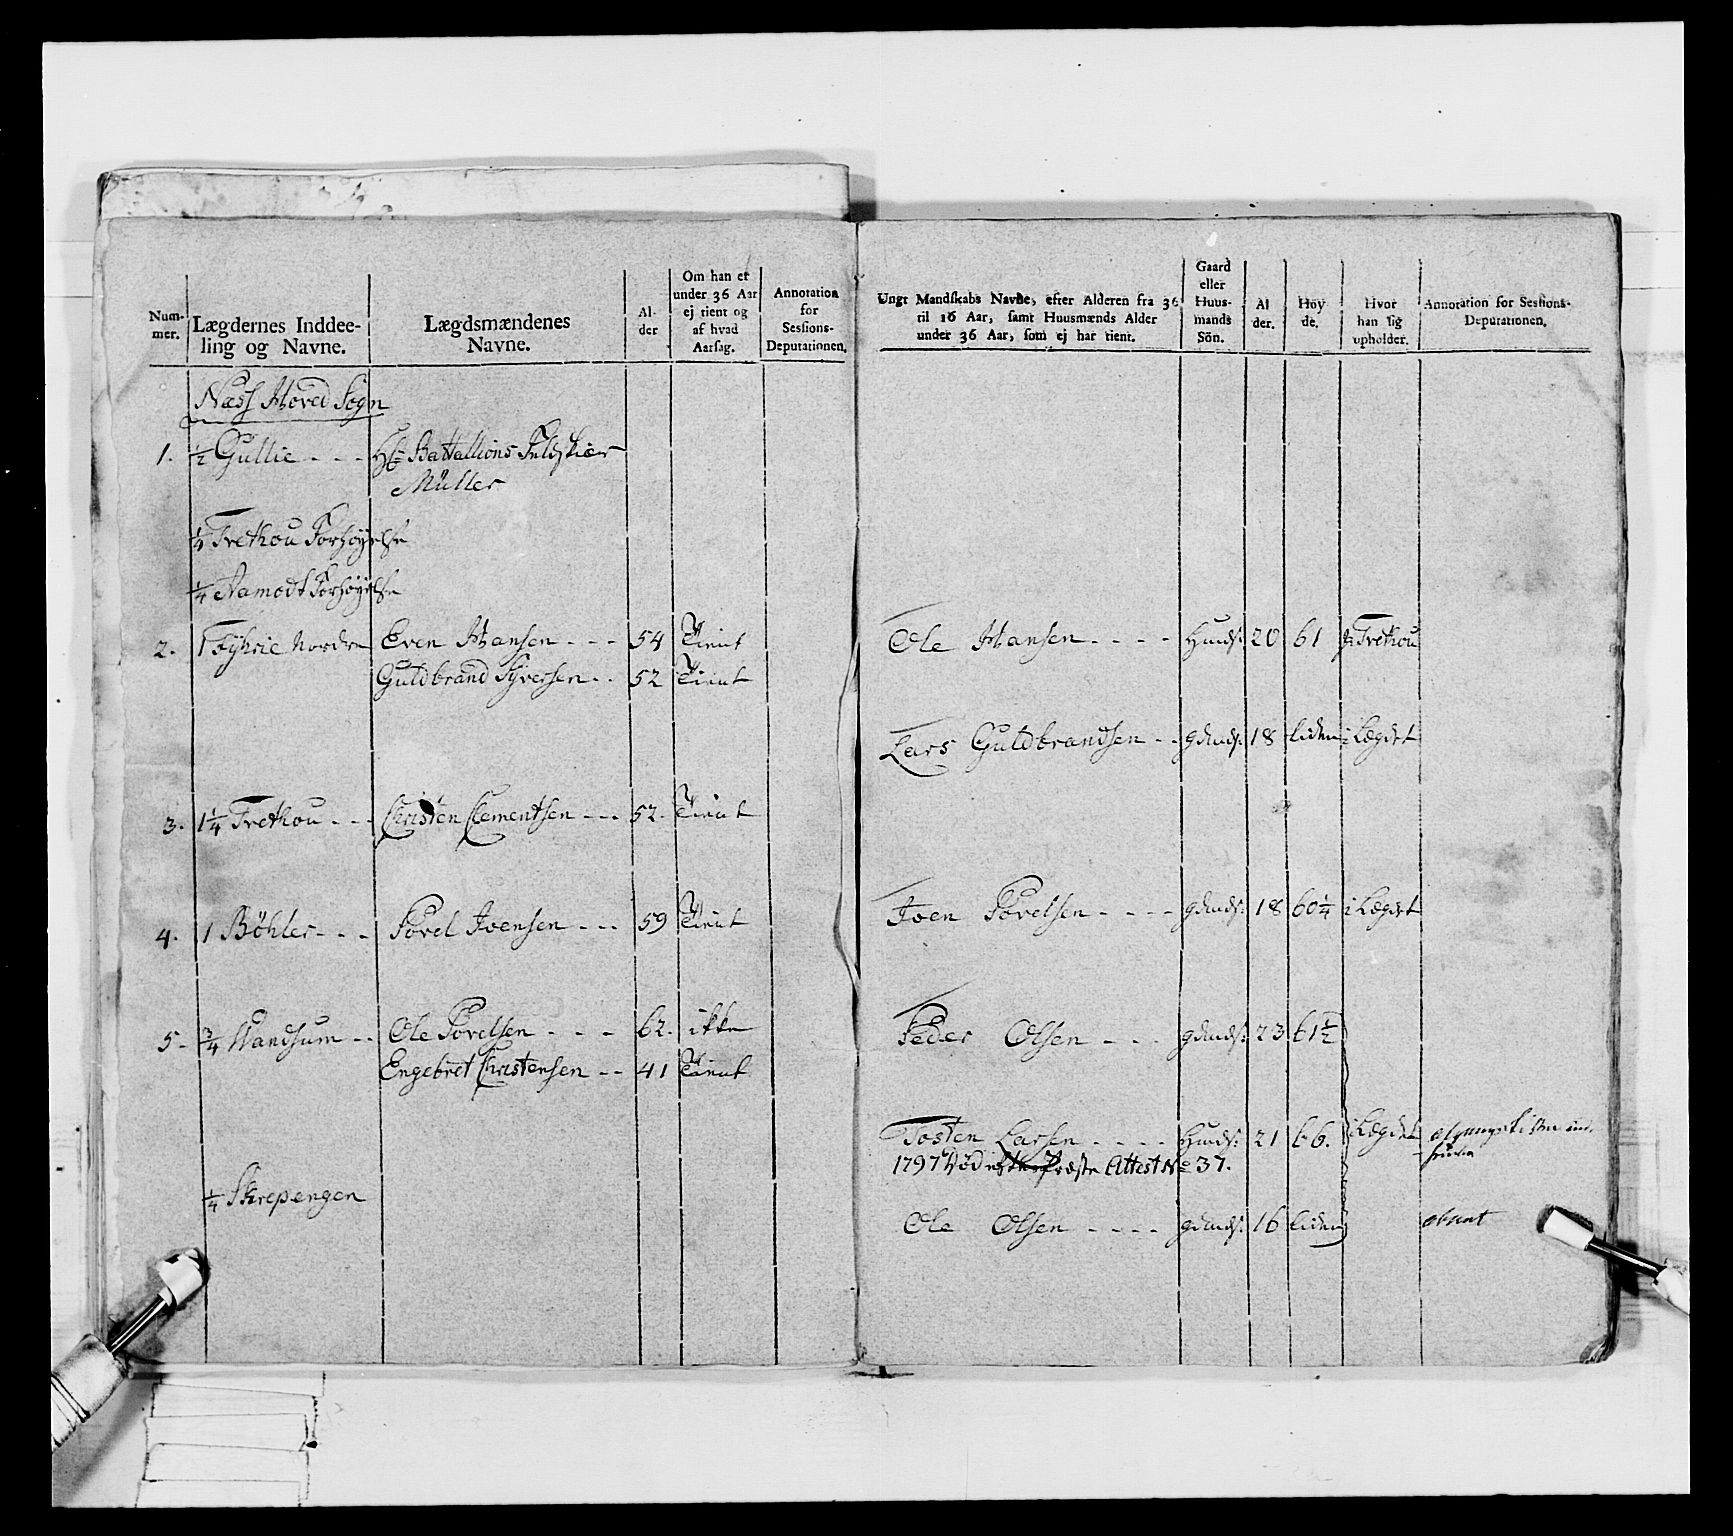 Num-
mer.
Lægdernes Inddee-
ling og Navne.
Lægdsmændenes
Navne.
Al-
der
Om han er
under 36 Aar
ej tient og
af hvad
Aarsag.
Annotation
for
Sessions-
Deputationen.
Næss Hoved Sogn
1. ½ Gullie - - - Hr Battallions Feldskiær
Müller
¼ Trethou Forhøyelse
¼ Aamodt Forhøyelse
2. 1 Fyhrie Nordre Even Hansen - - - 54 Tient
Guldbrand Syversen - - 52 Tient
3. 1¼ Trethou - - - Christen Clementsen - - - 52. Tient
4. 1 Böhler - - - Povel Joensen - - - 59 Tient
5. ¾ Wandsum - - Ole Povelsen - - - 62. ikke
Engebret Christensen - - 41 Tient
¼ Skrepengen
Ungt Mandskabs Navne, efter Alderen fra 36
til 16 Aar, samt Huusmænds Alder
under 36 Aar, som ej har tient.
Gaard
eller
Huus-
mands
Sön.
Al
der.
Höy
de.
Hvor
han sig
upholder.
Annotation for Sessions-
Deputationen.
Ole Hansen - - - - Hmds: 20 61 Trethou
Lars Guldbrandsen - - gdmds: 18 liden i Lægdet
Joen Povelsen - - - - gdmds: 18 60¼ i Lægdet
Peder Olsen - - - gdmds: 23 61½
Tosten Larsen - - - - Hmds: 21 66. i Lægdet
1797 Död efter Præste Attest No 37.
Ole Olsen - - - - gdmds: 16 liden absent